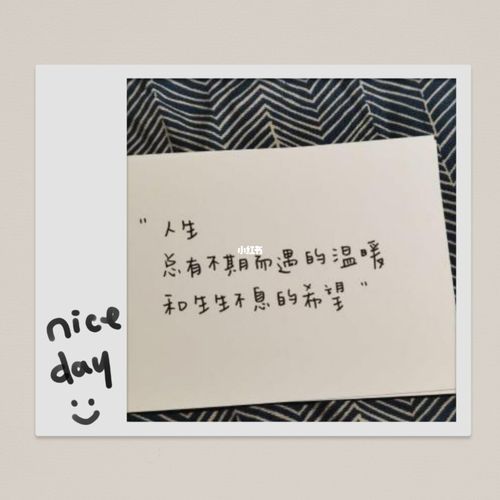 "人生
总有不期而遇的温暖
和生生不息的希望"
小红书
nice
day